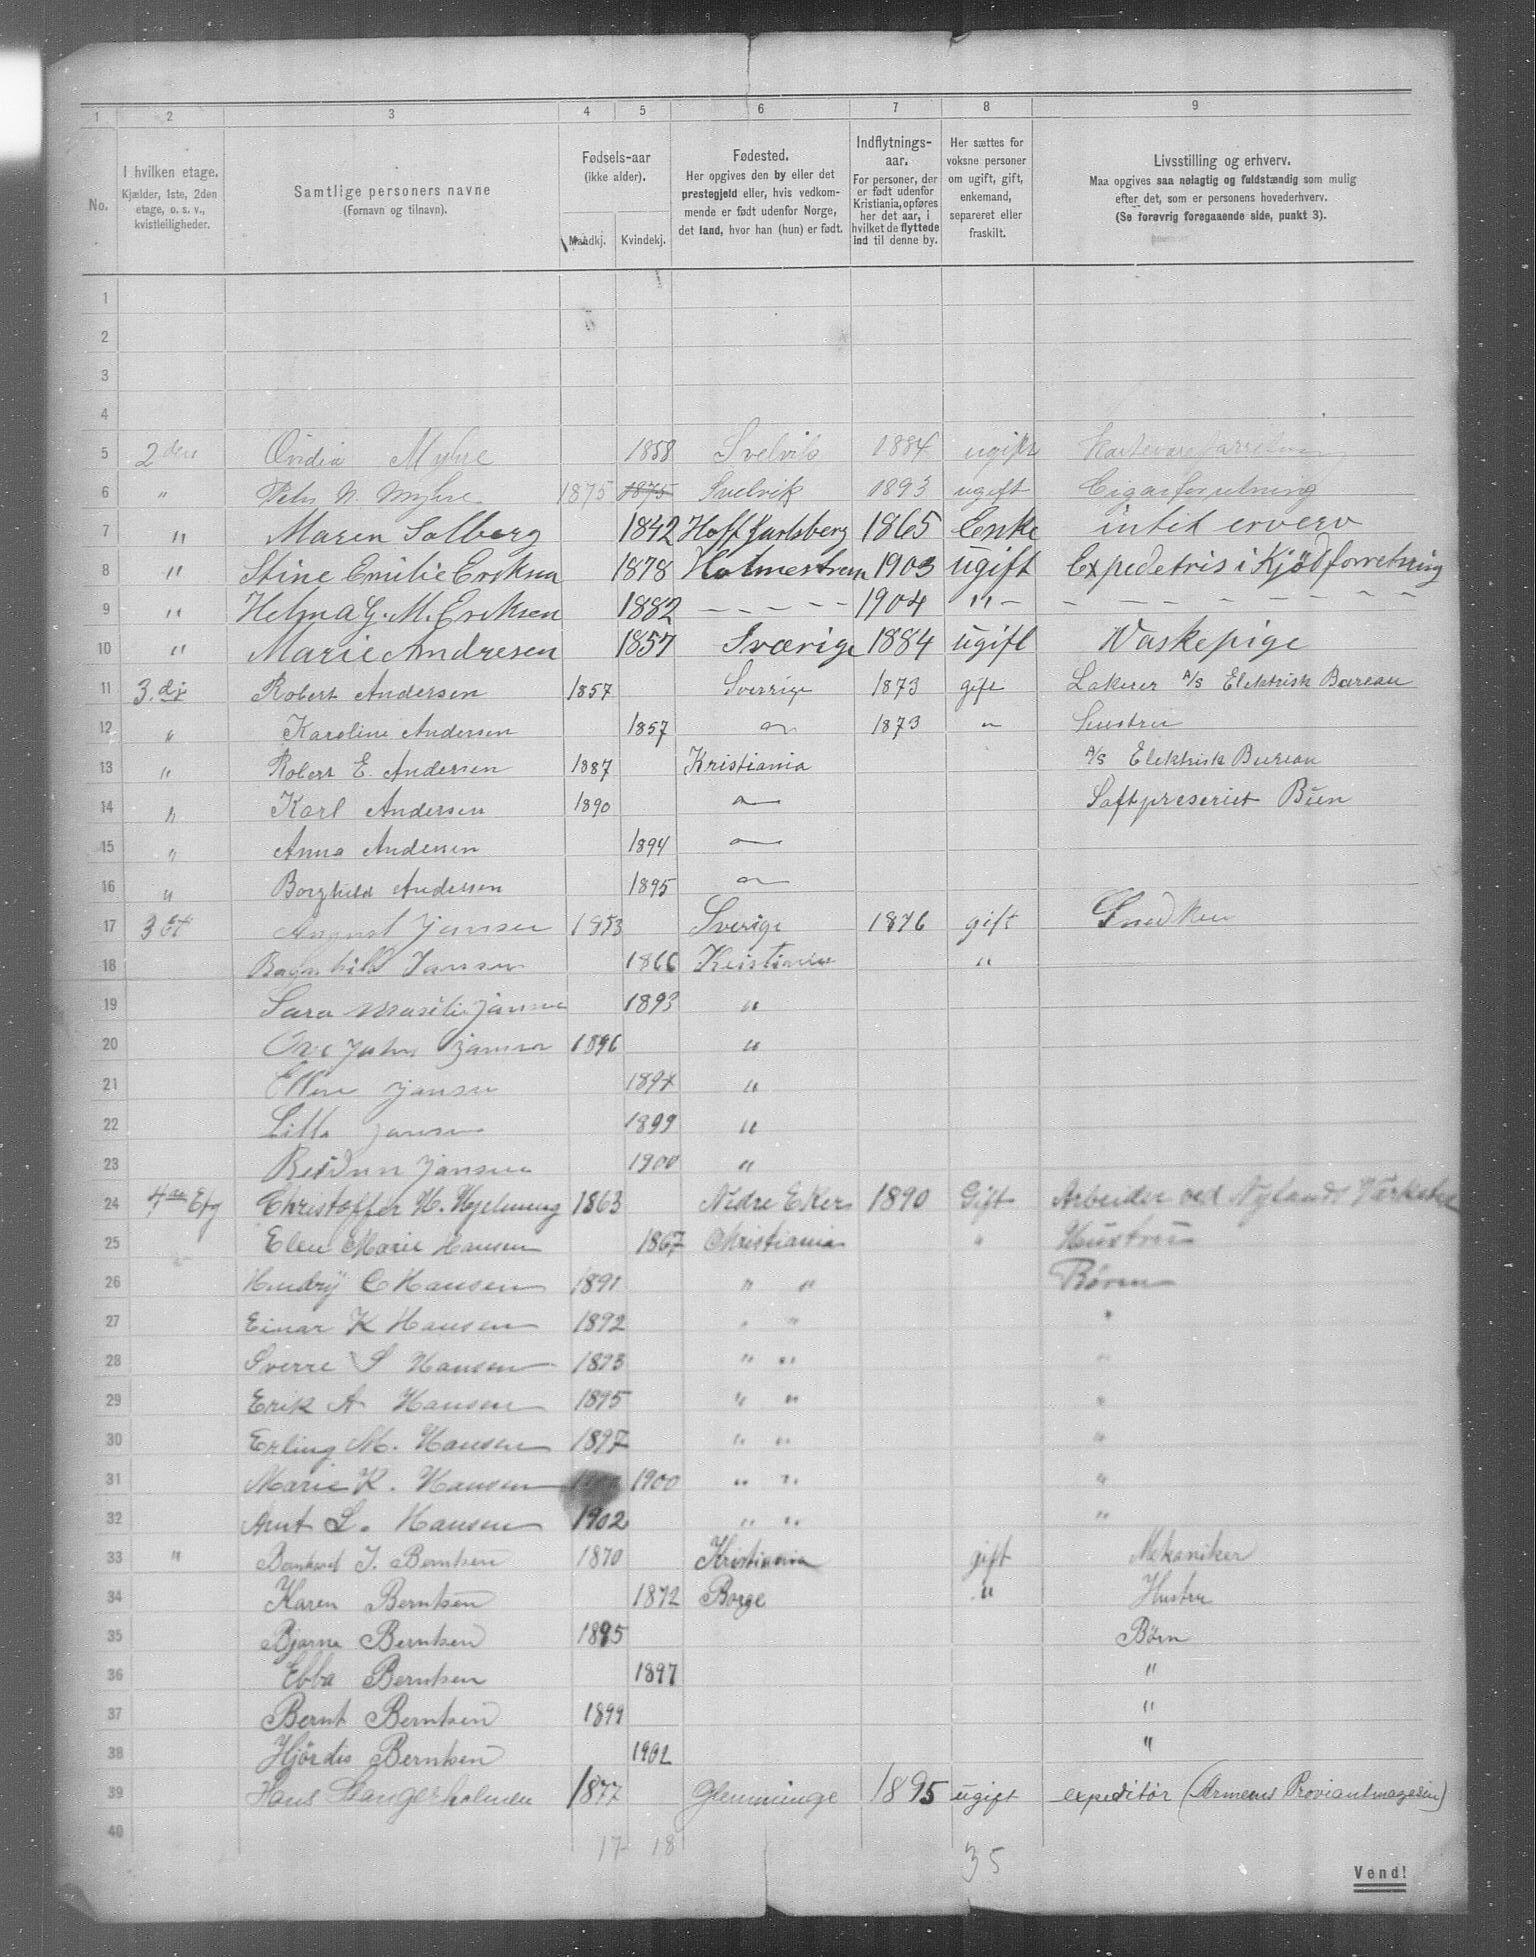 1 2 3 4 5 6 7 8 9
No.
I hvilken etage.
Kjælder, 1ste, 2den
etage, o. s. v.,
kvistleiligheder.
Samtlige personers navne
(Fornavn og tilnavn).
Fødsels-aar
(ikke alder).
Mandkj. Kvindekj.
Fødested.
Her opgives den by eller det
prestegjeld eller, hvis vedkom-
mende er født udenfor Norge,
det land, hvor han (hun) er født.
Indflytnings-
aar.
For personer, der
er født udenfor
Kristiania, opføres
her det aar, i
hvilket de flyttede
ind til denne by.
Her sættes for
voksne personer
om ugift, gift,
enkemand,
separeret eller
fraskilt.
Livsstilling og erhverv.
Maa opgives saa nøiagtig og fuldstændig som mulig
efter det, som er personens hovederhverv.
(Se forøvrig foregaaende side, punkt 3).
1
2
3
4
5 2den Ovidia Myhre 1858 Svelvik 1884 ugift
6 " Myhre 1875 1875 Svelvik 1893 ugift Cigarforretning
7 " Maren Solberg 1842 Hoff Jarlsberg 1865 Enke intit erverv
8 " Stine Emilie Eriksen 1878 Holmestran 1903 ugift Expedetris i Kjödforretning
9 " Helma G. M. Eriksen 1882 - - - - - 1904 " - - - - - - - - -
10 " Marie Andresen 1857 Sværige 1884 ugift Vaskepige
11 3.dj Robert Andersen 1857 Sverrige 1873 gift Lakerer A/S Elektrisk Bureau
12 " Karoline Andersen 1857 " 1873 " Hustru
13 " Robert E. Andersen 1887 Kristiania A/S Elektrisk Bureau
14 " Karl Andersen 1890 " Saftpreseriet Bien
15 " Anna Andersen 1894 "
16 " Borghild Andersen 1895 "
17 3 Et August Jansen 1853 Sverige 1876 gift Snedker
18 Ragnhild Jansen 1866 Kristiania "
19 Sara Jansen 1893 "
20 John Jansen 1896 "
21 Ellen Jansen 1897 "
22 Lilla Jansen 1899 "
23 Reidun Jansen 1900 "
24 4de Etg Christoffer H. 1863 Nedre Eker 1890 Gift Arbeider ved Nylands Værksted
25 Elen Marie Hansen 1867 Christiania " Hustru
26 Hendry C Hansen 1891 " " Børen
27 Einar K Hansen 1892 " " "
28 Sverre S Hansen 1893 " " "
29 Erik A Hansen 1895 " " "
30 Erling M. Hansen 1897 " " "
31 Marie K. Hansen 1900 " " "
32 Arnt L. Hansen 1902 " " "
33 " J. Berntsen 1870 Kristiania gift Mekaniker
34 Karen Berntsen 1872 Borge " Hustru
35 Bjarne Berntsen 1895 Børn
36 Ebba Berntsen 1897 "
37 Bernt Berntsen 1899 "
38 Hjördis Berntsen 1902 "
39 Hans Slangerholmen 1877 Glemminge 1895 ugift expeditör (Armeens Proviantmagasin)
40
17 18 35
Vend!